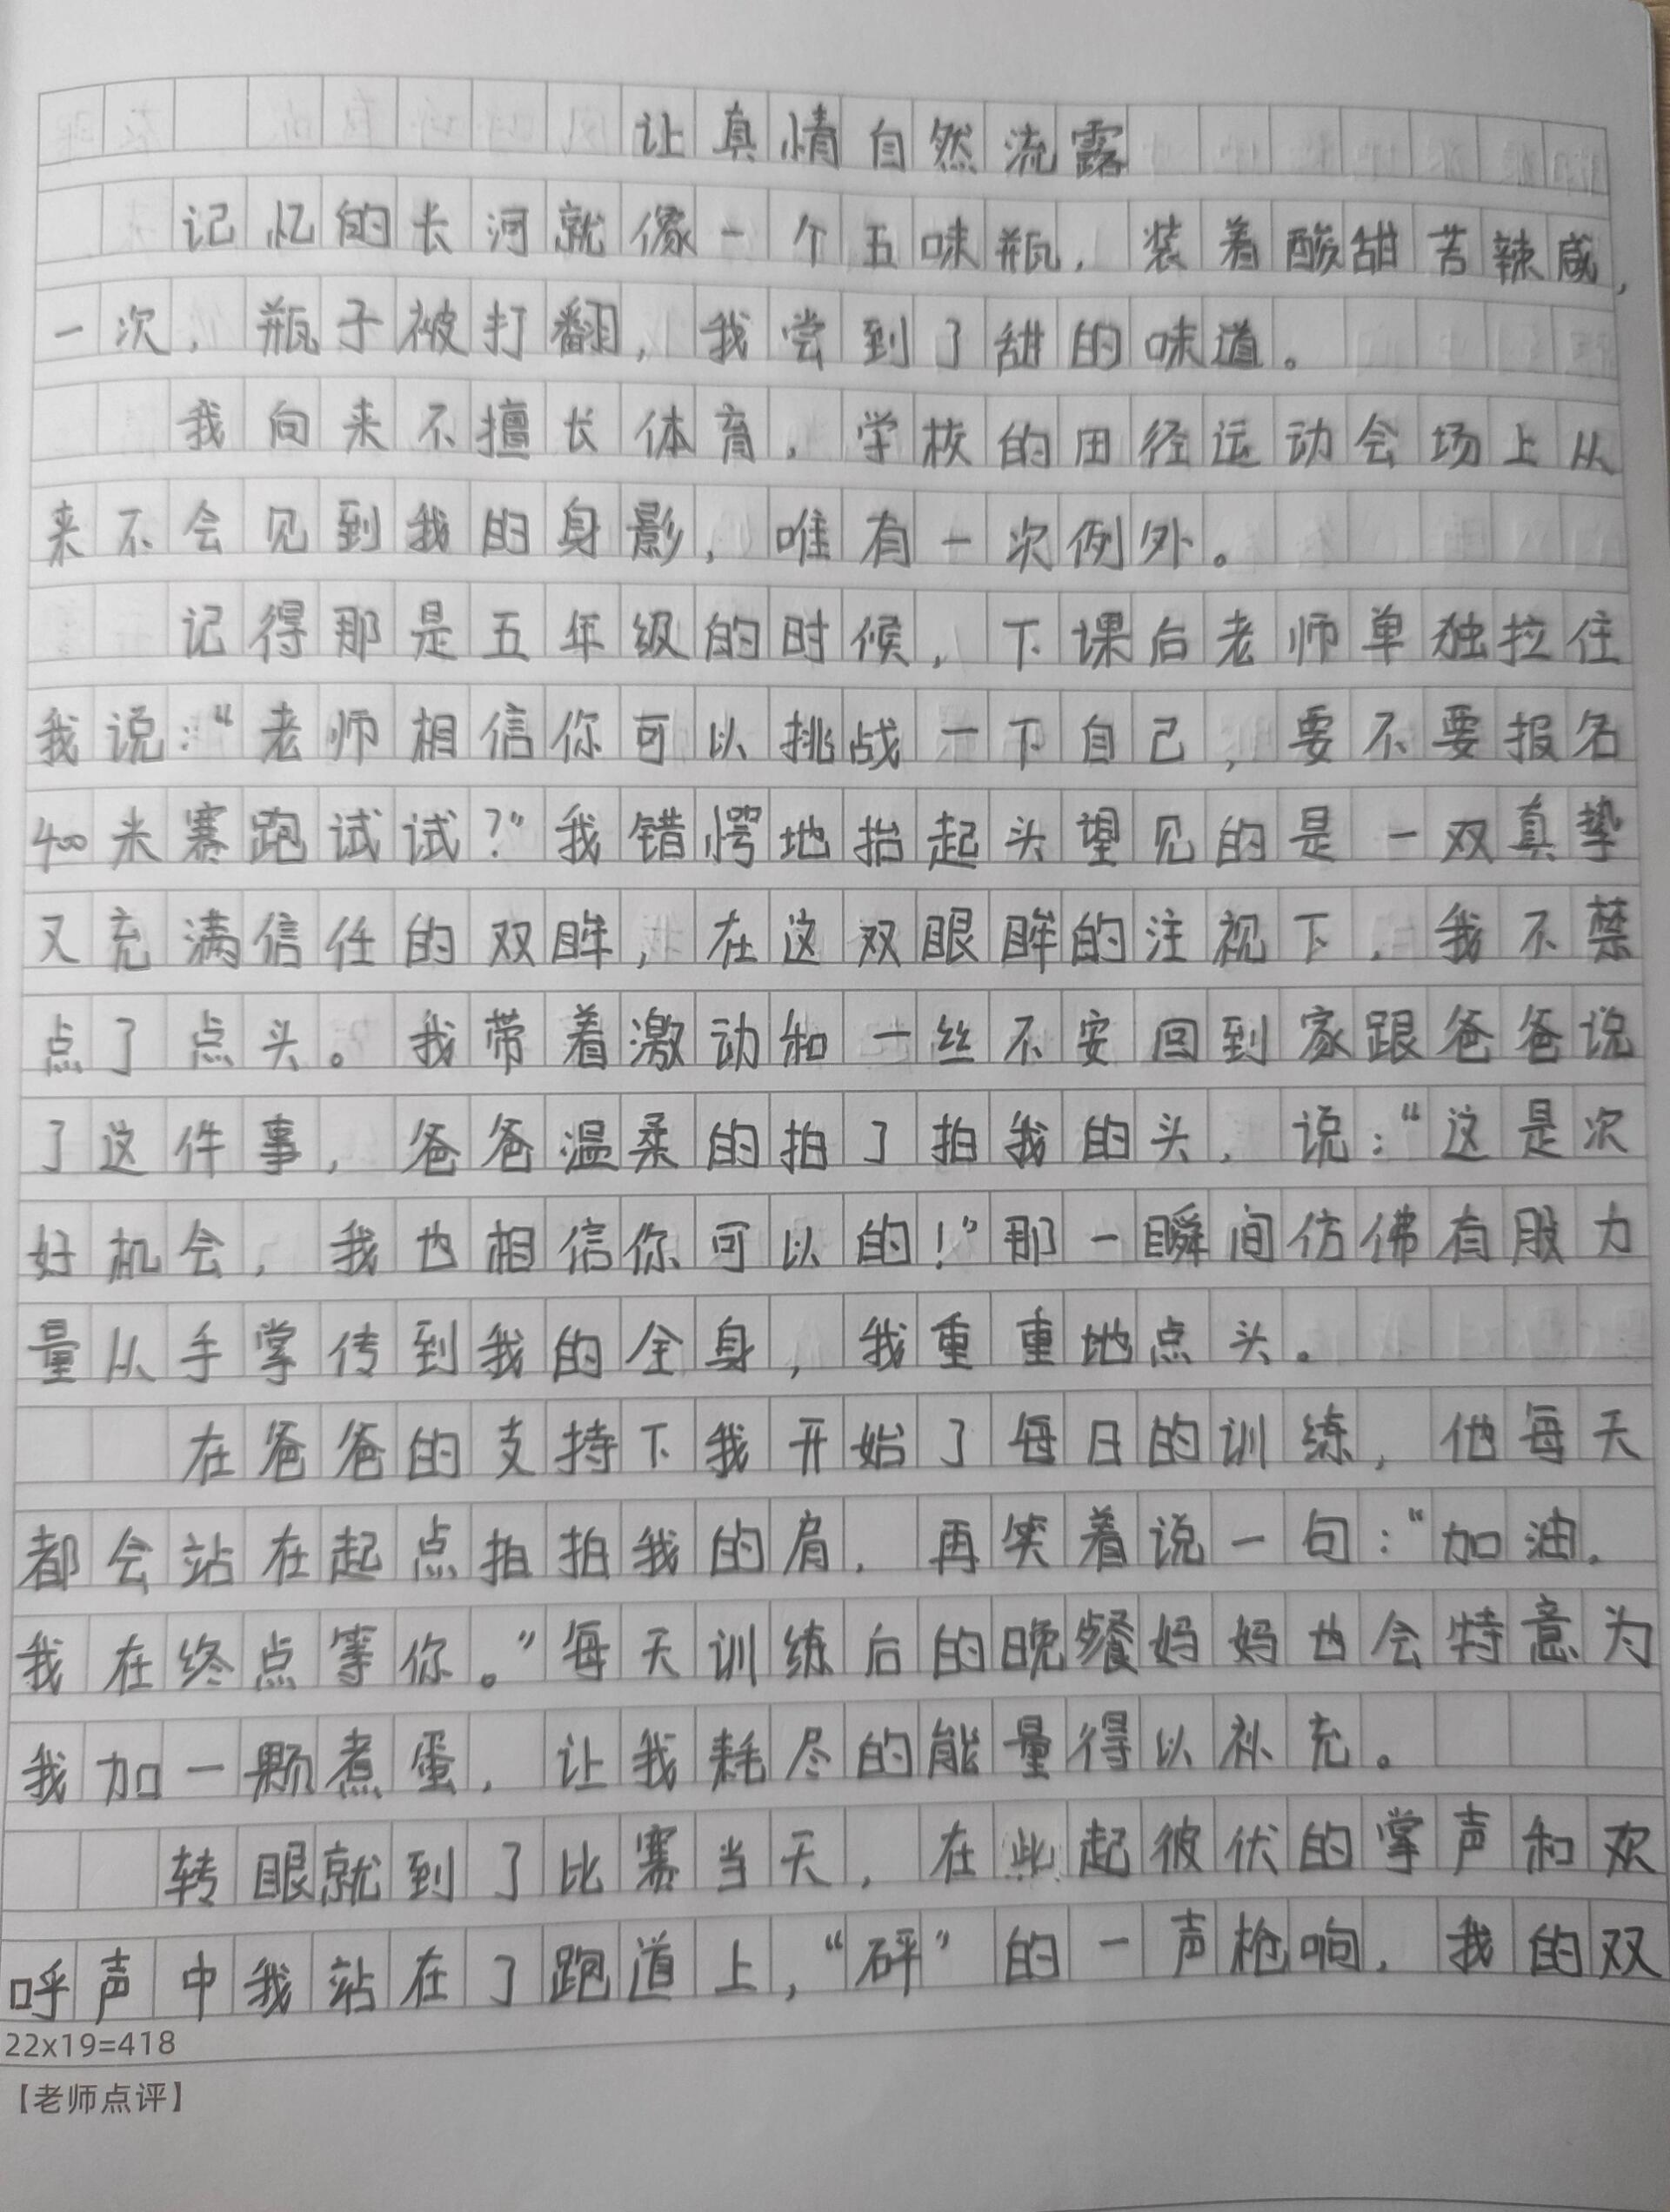 让真情自然流露
记忆的长河就像一个五味瓶，装着酸甜苦辣咸，
一次，瓶子被打翻，我尝到了甜的味道。
我向来不擅长体育，学校的田径运动会场上从
来不会见到我的身影，唯有一次例外。
记得那是五年级的时候，下课后老师单独拉住
我说：“老师相信你可以挑战一下自己，要不要报名
400米赛跑试试？”我错愕地抬起头望见的是一双真挚
又充满信任的双眸，在这双眼眸的注视下，我不禁
点了点头。我带着激动和一丝不安回到家跟爸爸说
了这件事，爸爸温柔的拍了拍我的头，说：“这是次
好机会，我也相信你可以的！”那一瞬间仿佛有股力
量从手掌传到我的全身，我重重地点头。
在爸爸的支持下我开始了每日的训练，他每天
都会站在起点拍拍我的肩，再笑着说一句：“加油，
我在终点等你。”每天训练后的晚餐妈妈也会特意为
我加一颗煮蛋，让我耗尽的能量得以补充。
转眼就到了比赛当天，在此起彼伏的掌声和欢
呼声中我站在了跑道上，“砰”的一声枪响，我的双
22x19=418
【老师点评】